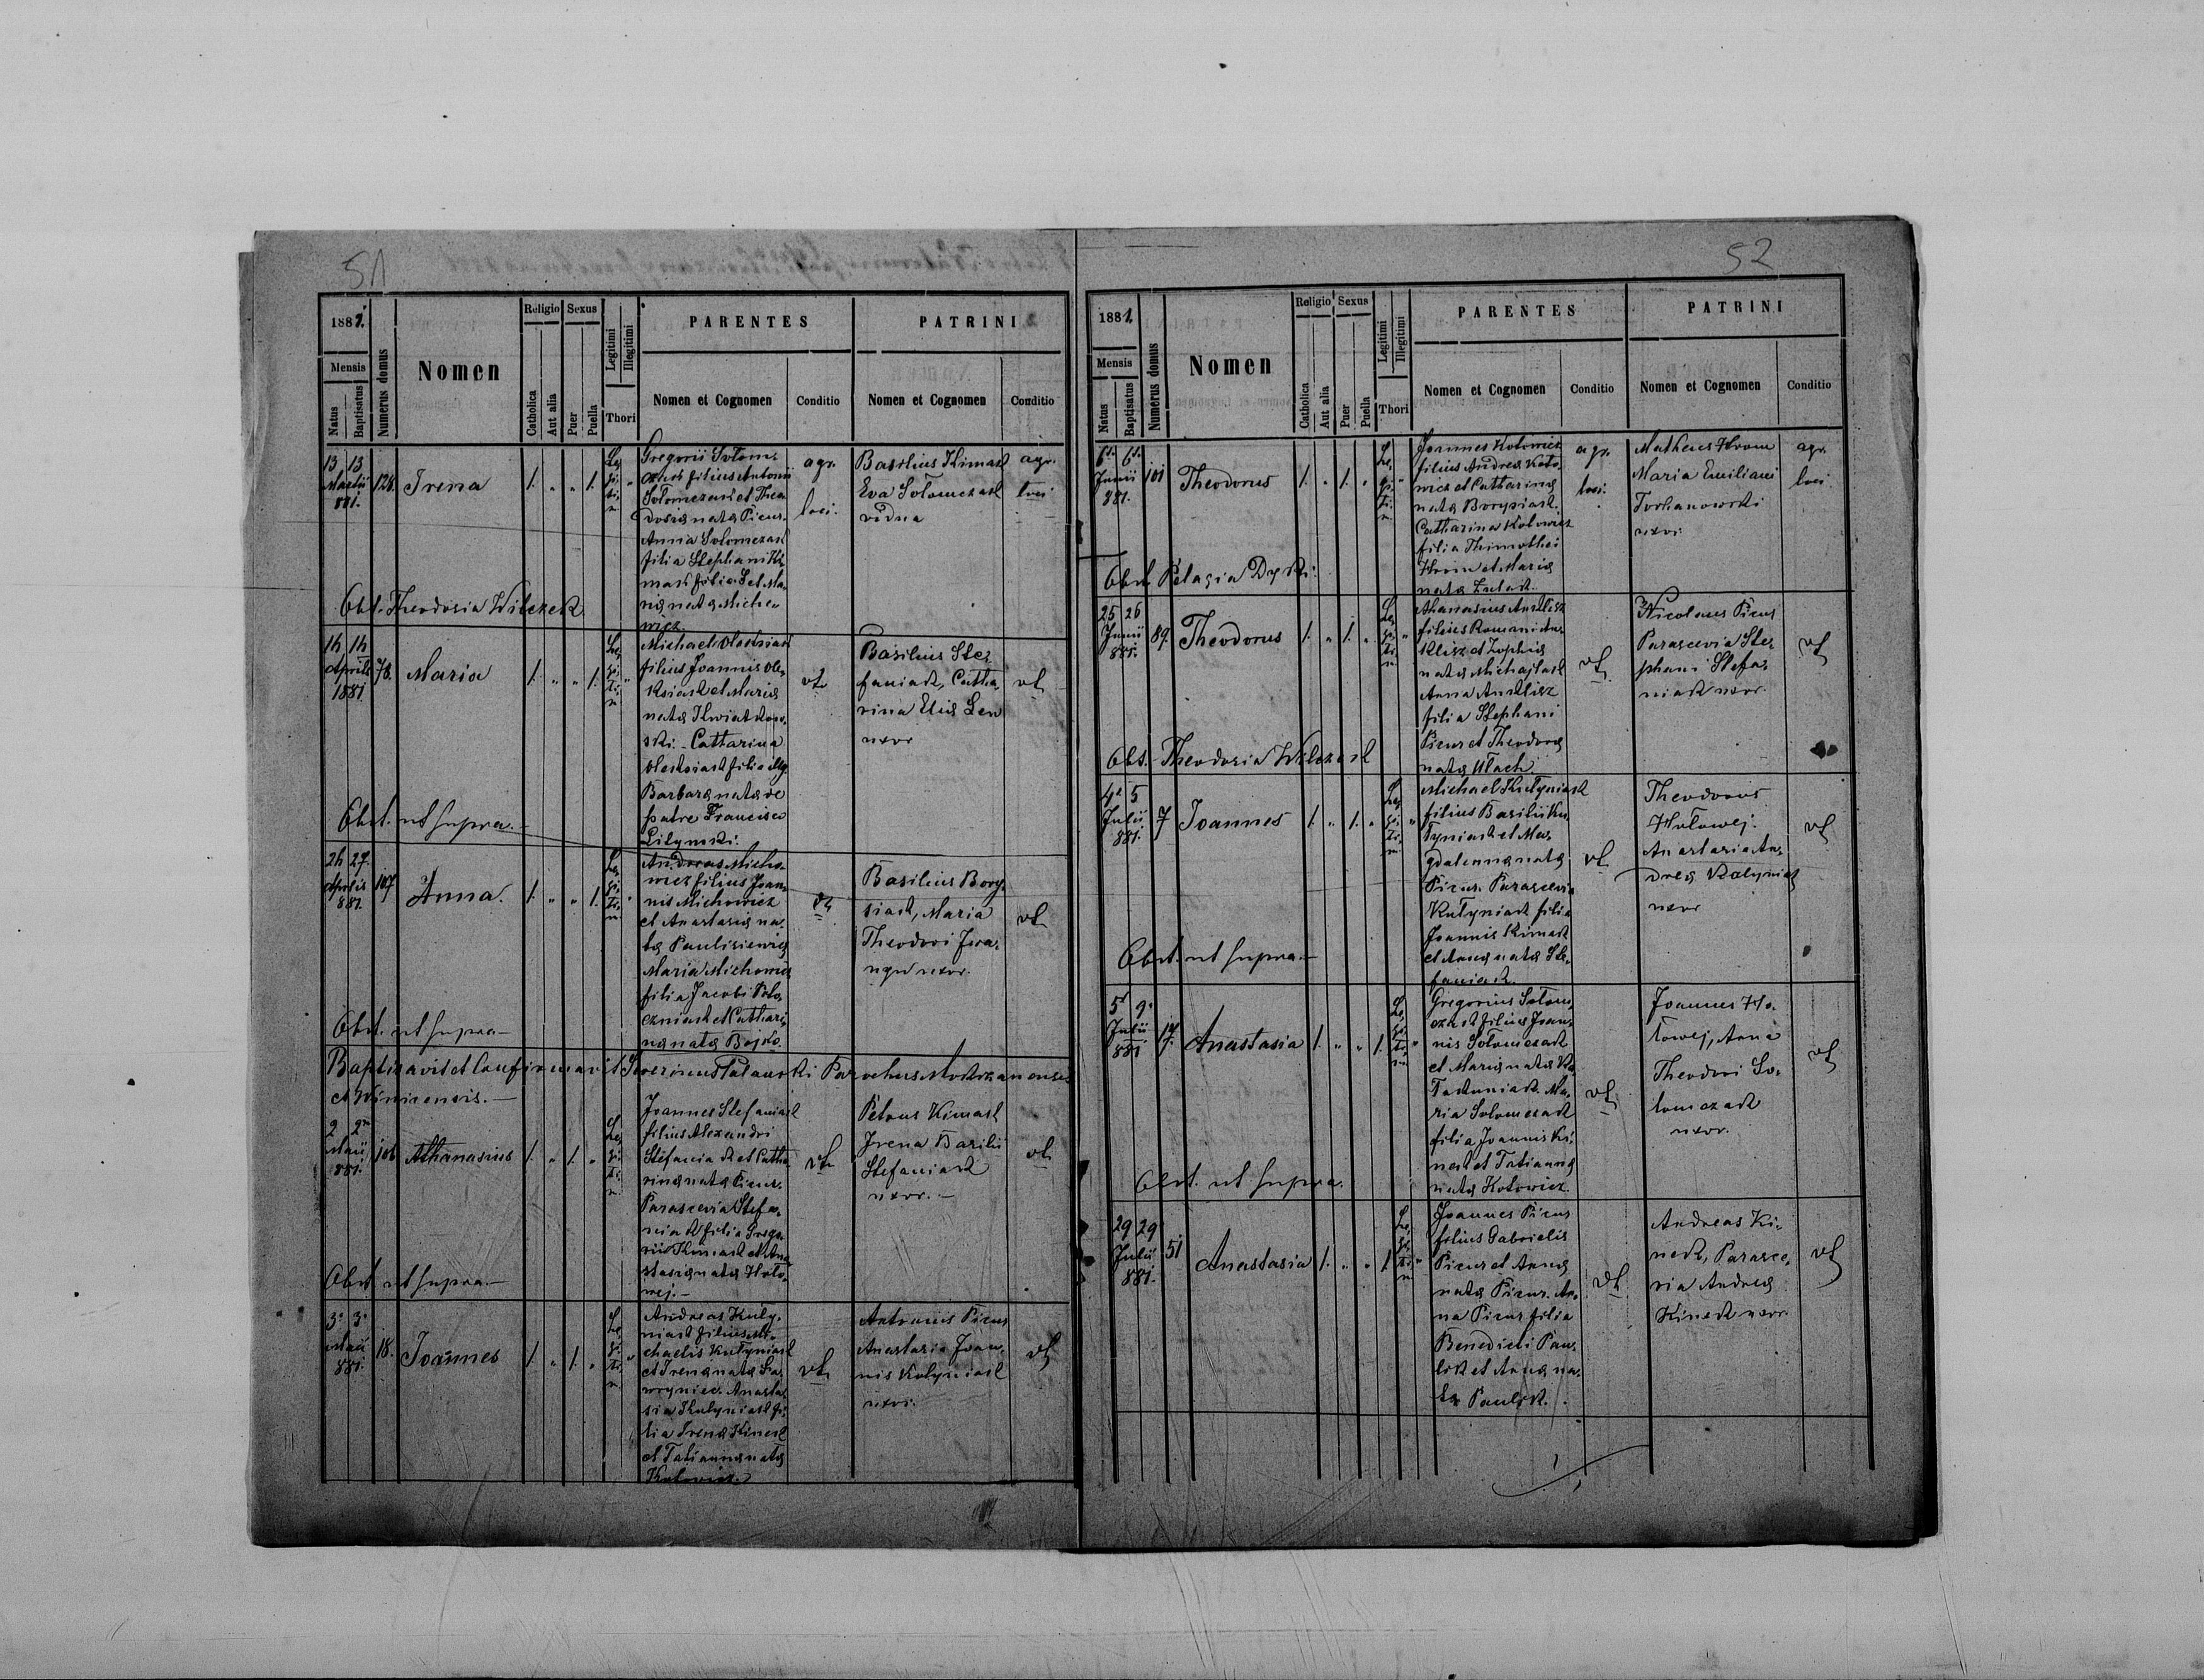 51
1881.
Mensis
Natus
Baptisatus
Numerus domus
Nomen
Religio
Catholica
Aut alia
Sexus
Puer
Puella
Legitimi
Illegitimi
Thori
PARENTES
Nomen et Cognomen
Conditio
PATRINI
Nomen et Cognomen
Conditio
13 13
Martii
881.
128.
Irena
1. " " 1.
Le
gi
ti
m
Gregorii Solom
czuk filius Antonii
Solomczuk et Theo
dosia nata Picur.
Anna Solomczuk
filia Stephani Ki
mak
ria nata Micho
wicz.
agr.
loci.
Basilius Kimak
Eva Solomczak
vidua
agr.
loci
Obst. Theodosia Wilczek.
14 14
Aprilis
1881.
78.
Maria
1. " " 1.
Michael Oleksiak
filius Joannis Ole
ksiak et Maria
nata Kwiatkow
ski. Catharina
Oleksiak filia illeg.
Barbara nata de
patre Francisco
Lilynski.
vt
Basilius Ste
faniak, Catha
rina Elia Lew
uxor
vt
Obst. ut supra.
24 27.
Aprilis
881.
107
Anna.
1. " " 1.
Andreas Micho
wicz filius Joan
nis Michowicz
et Anastasia na
ta Paulisiewicz
Maria Michowicz
filia Jacobi
et Cathari
na nata Bojko.
vt
Basilius Bory
siak, Maria
Theodori
uxor.
vt
Obst. ut supra
Baptisavit et Confirmavit Severinus Parochus
et
2 2
Maii
881.
106
Athanasius
1. " 1. "
Joannes Stefaniak
filius Alexandri
Stefaniak et Catha
rina nata Picur.
Parascevia Stefa
niak filia Grego
rii Kimak et Ana
stasia nata Holo
wej.
vt
Petrus Kimak
Irena Basilii
Stefaniak
uxor.
vt
Obst. ut supra.
3. 3.
Maii
881.
18.
Joannes
1. " 1. "
Andreas Kuty
niak filius Mi
chaelis Kutyniak
et Irena nata Ła
wryniec. Anasta
sia Kutyniak fi
lia Kinek
et Tatianna nata
Kotowicz.
vt
Antonius Picur
Anastasia Joan
nis Kutyniak
uxor.
vt
52
1881.
Mensis
Natus
Baptisatus
Numerus domus
Nomen
Religio
Catholica
Aut alia
Sexus
Puer
Puella
Legitimi
Illegitimi
Thori
PARENTES
Nomen et Cognomen
Conditio
PATRINI
Nomen et Cognomen
Conditio
6. 6.
Junii
881.
101
Theodorus
1. " 1. "
Joannes Kotowicz
filius Andrea Koto
wicz et Catharina
nata Borysiak.
Catharina Kotowicz
filia Thimothei
Hrom et Maria
nata
agr.
loci.
Matheus Hrom
Maria Emiliani
Torhanowski
uxor
agr.
loci.
Obst. Pelagia
25 26
Junii
881.
89.
Theodorus
1. " 1. "
Athanasius Anklisz
filius Romani An
klisz et Zophia
nata Michajlak
Anna Anklisz
filia Stephani
Picur et Theodora
nata Ulach.
vt
Nicolaus Picur
Parascevia Ste
phani Stefa
niak uxor.
vt
Obst. Theodosia Wilczek
4. 5
Julii
881.
7
Joannes
1. " 1. "
Michael Kutyniak
filius Basilii Ku
tyniak et Ma
gdalenna nata
Picur. Parascevia
Kutyniak filia
Joannis Kimak
et Anna nata Ste
faniak.
vt
Theodorus
Hołowej.
Anastasia An
drea Kutyniak
uxor
vt
Obst. ut supra.
5 9.
Julii
881.
17.
Anastasia
1. " " 1.
Gregorius Solom
czak filius Joan
nis Solomczak
et Maria nata
Ma
ria Solomczak
filia Joannis Ki
nek et Tatianna
nata Kotowicz.
vt
Joannes Ho
łowej, Anna
Theodori So
lomczak
uxor.
vt
Obst. ut supra.
29 29
Julii
881.
51
Anastasia
1. " " 1.
Joannes Picur
filius Gabrielis
Picur et Anna
nata Picur. An
na Picur filia
Benedicti Pau
lik et Anna na
ta Paulik.
vt
Andreas Ki
nek, Parasce
via Andrea
Kinek uxor
vt